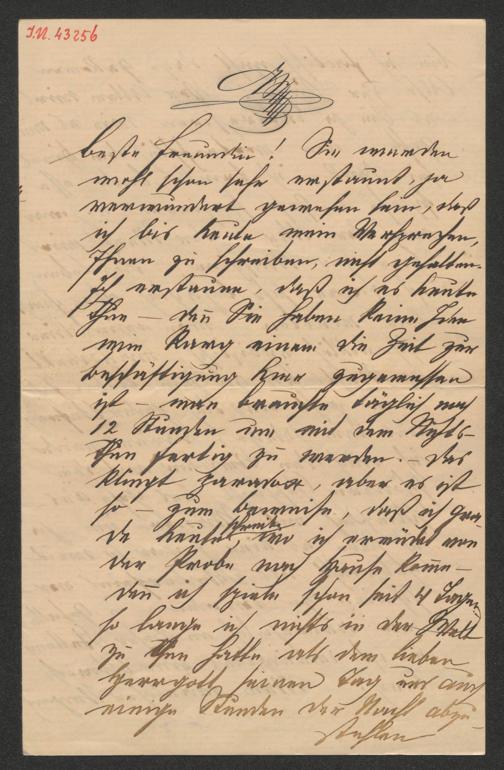 I.N. 43256
Beste Freundin! Sie werden
wohl schon sehr erstaunt, ja
verwundert gewesen sein, daß
ich bis heute mein Versprechen,
Ihnen zu schreiben, nicht gehalten.
Ich erstaune, daß ich es heute
thue – den Sie haben keine Idee
wie karg einem die Zeit zur
Beschäftigung hier zugemessen
ist – man brauchte täglich noch
12 Stunden um mit dem Nichts-
thun fertig zu werden. – Das
klingt paradox, aber es ist
so – zum beweise, daß ich gra
de heute schreibe, wo ich ermüdet von
der Probe nach Hause komme –
den ich spiele schon seit 4 Tagen
so lange ich nichts in der Welt
zu thun hatte als dem lieben
Herrgott seinen Tag und auch
einige Stunden der Nacht abzu-
stehlen